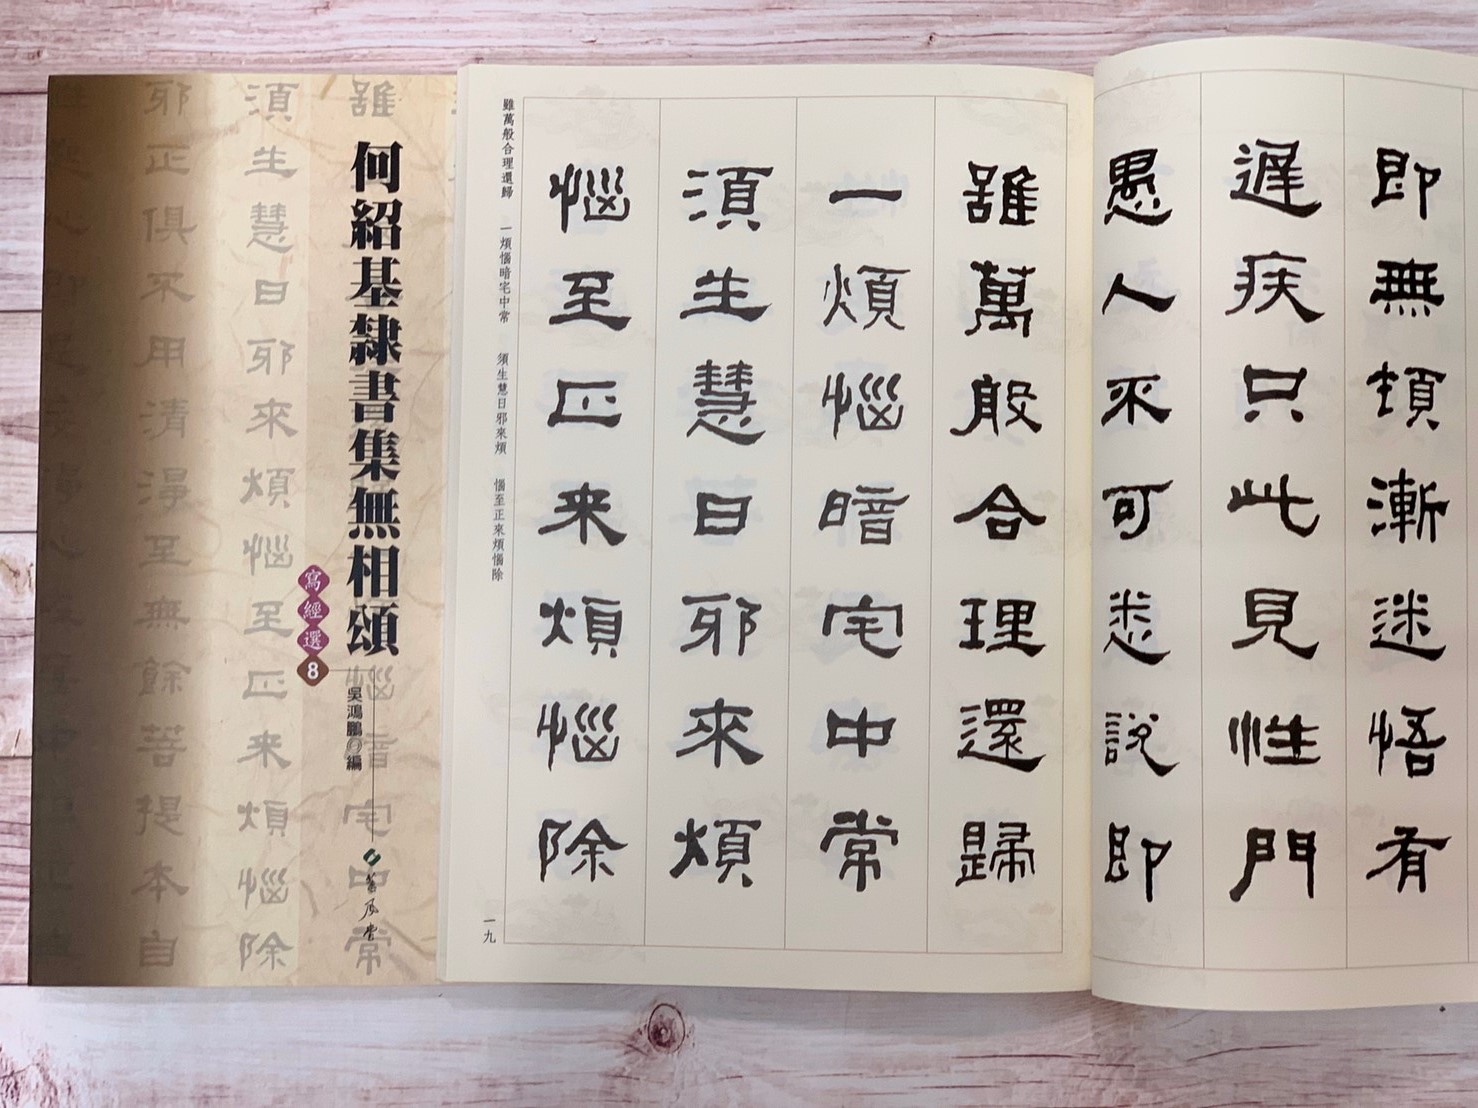 何紹基隸書集無相頌
寫經選
8
吳鴻鵬◎編
蕙風堂
雖
惱暗宅中常
須生慧日邪來煩惱至正来煩惱除
邪正俱不用清淨至無餘菩提本自
即無頓漸迷悟有
遲疾只此見性門
愚人不可悉說即
雖萬般合理還歸
一煩惱暗宅中常
須生慧日邪來煩
惱至正来煩惱除
雖萬般合理還歸 一煩惱暗宅中常 須生慧日邪來煩 惱至正來煩惱除
一九